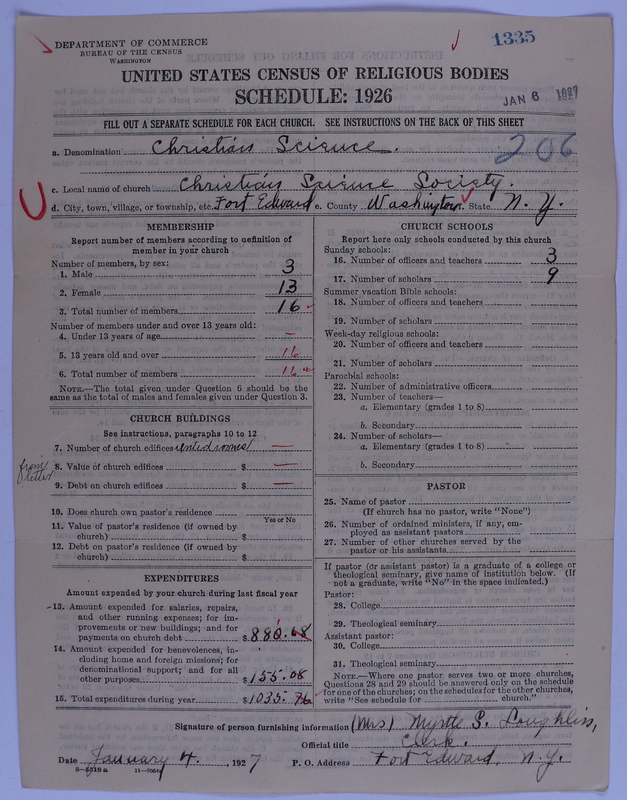 DEPARTMENT OF COMMERCE
BUREAU OF THE CENSUS
WASHINGTON
1335
UNITED STATES CENSUS OF RELIGIOUS BODIES
SCHEDULE: 1926
JAN 6 1927
FILL OUT A SEPARATE SCHEDULE FOR EACH CHURCH. SEE INSTRUCTIONS ON THE BACK OF THIS SHEET
a. Denomination Christian Science.
206
c. Local name of church Christian Science Society.
d. City, town, village, or township, etc. Fort Edward e. County Washington. State N. Y.
MEMBERSHIP
Report number of members according to definition of
member in your church
Number of members, by sex:
1. Male 3
2. Female 13
3. Total number of members 16
Number of members under and over 13 years old:
4. Under 13 years of age —
5. 13 years old and over 16
6. Total number of members 16
NOTE.—The total given under Question 6 should be the
same as the total of males and females given under Question 3.
CHURCH BUILDINGS
See instructions, paragraphs 10 to 12
7. Number of church edifices rented rooms —
from letter
8. Value of church edifices $ —
9. Debt on church edifices $ —
10. Does church own pastor's residence
Yes or No
11. Value of pastor's residence (if owned by
church) $
12. Debt on pastor's residence (if owned by
church) $
EXPENDITURES
Amount expended by your church during last fiscal year
13. Amount expended for salaries, repairs,
and other running expenses; for im-
provements or new buildings; and for
payments on church debt $ 880.68
14. Amount expended for benevolences, in-
cluding home and foreign missions; for
denominational support; and for all
other purposes $ 155.08
15. Total expenditures during year $ 1035.76
CHURCH SCHOOLS
Report here only schools conducted by this church
Sunday schools:
16. Number of officers and teachers 3
17. Number of scholars 9
Summer vacation Bible schools:
18. Number of officers and teachers
19. Number of scholars
Week-day religious schools:
20. Number of officers and teachers
21. Number of scholars
Parochial schools:
22. Number of administrative officers
23. Number of teachers—
a. Elementary (grades 1 to 8)
b. Secondary
24. Number of scholars—
a. Elementary (grades 1 to 8)
b. Secondary
PASTOR
25. Name of pastor
(If church has no pastor, write "None")
26. Number of ordained ministers, if any, em-
ployed as assistant pastors
27. Number of other churches served by the
pastor or his assistants
If pastor (or assistant pastor) is a graduate of a college or
theological seminary, give name of institution below. (If
not a graduate, write "No" in the space indicated.)
Pastor:
28. College
29. Theological seminary
Assistant pastor:
30. College
31. Theological seminary
NOTE.—Where one pastor serves two or more churches,
Questions 28 and 29 should be answered only on the schedule
for one of the churches; on the schedules for the other churches,
write "See schedule for church."
Signature of person furnishing information (Mrs) Myrtle S. Loughlin,
Official title Clerk.
Date January 4, 1927 P. O. Address Fort Edward, N. Y.